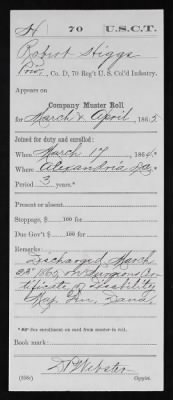 H 70 U.S.C.T.
Robert Higgs
Priv., Co. D, 70 Reg't U. S. Col'd Infantry.
Appears on
Company Muster Roll
for March & April, 1865.
Joined for duty and enrolled:
When March 17, 1864.*
Where Alexandria La.
Period 3 years.*
Present or absent,
Stoppage, $ 100 for
Due Gov't $ 100 for
Remarks:
Discharged March
23" 1865 on Surgeons Cer-
tificate of Disability
*See enrollment on card from muster-in roll.
Book mark:
Webster
(858c) Copyist.